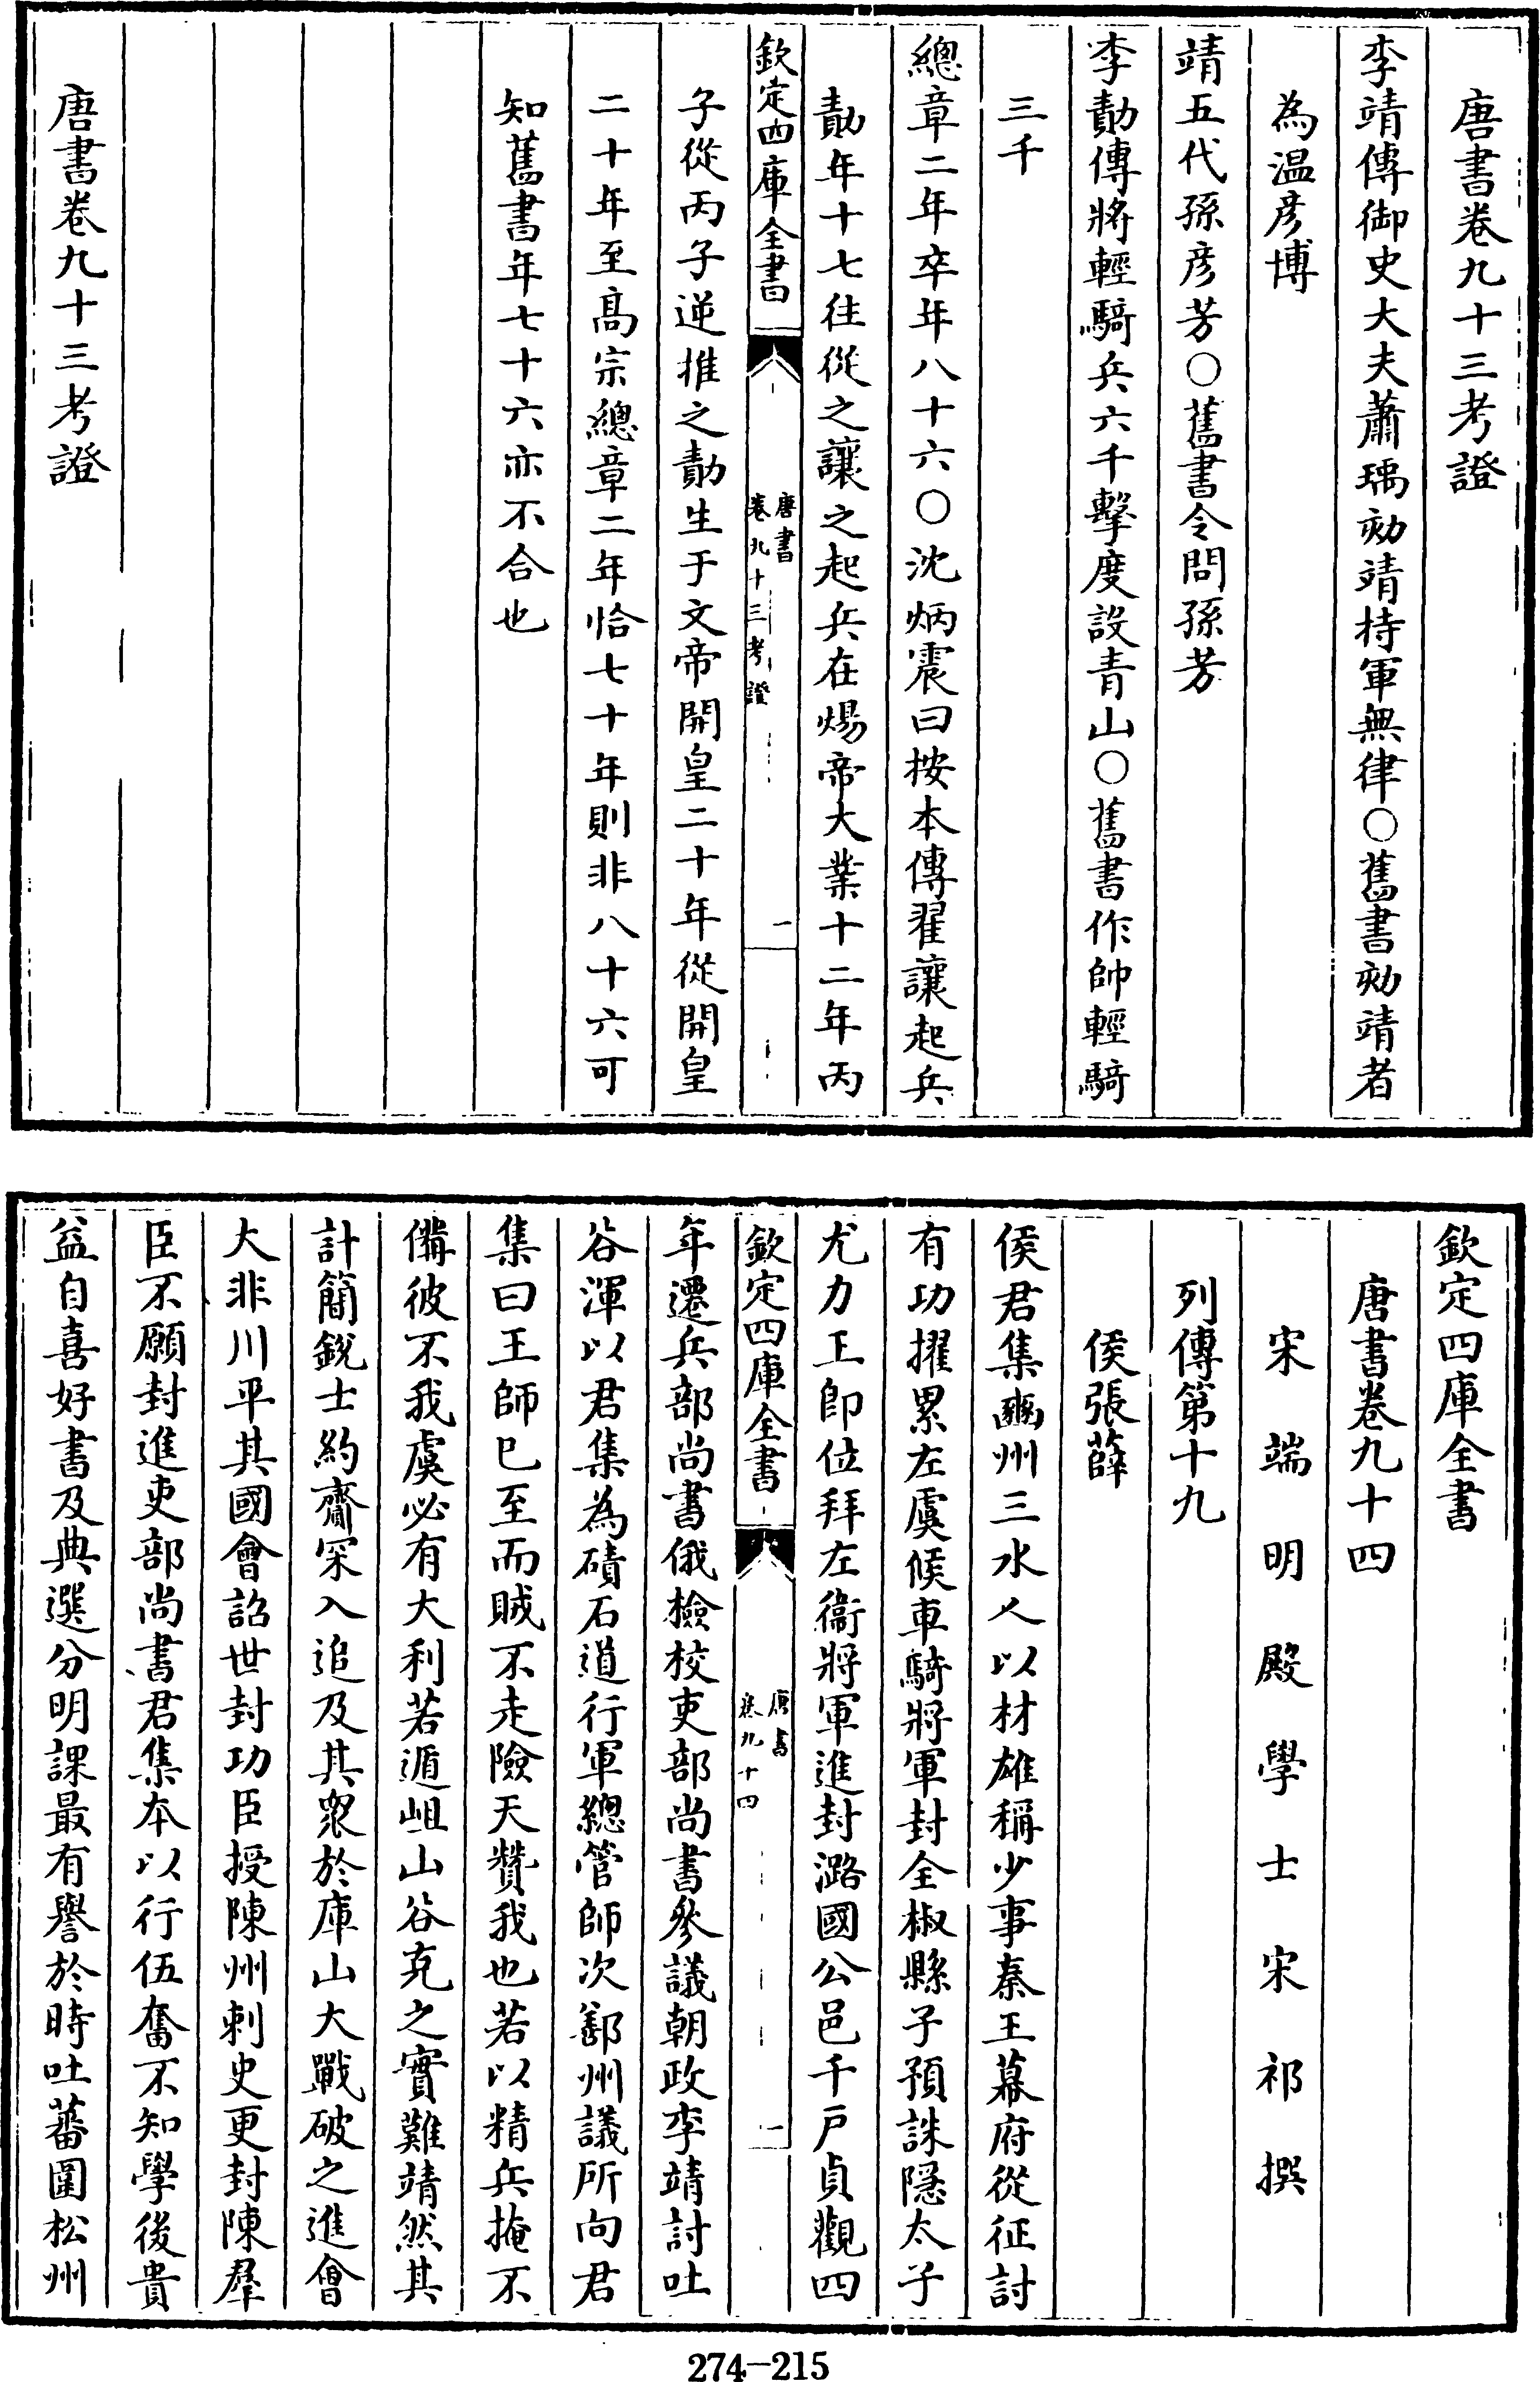 唐書卷九十三考證
李靖傳御史大夫蕭瑀劾靖持軍無律○舊書劾靖者
為温彦博
靖五代孫彦芳○舊書令問孫芳
李勣傳將輕騎兵六千擊度設青山○舊書作帥輕騎
三千
總章二年卒年八十六○沈炳震曰按本傳翟讓起兵
勣年十七往從之讓之起兵在煬帝大業十二年丙
欽定四庫全書
唐書
卷九十三考證
一
子從丙子逆推之勣生于文帝開皇二十年從開皇
二十年至髙宗總章二年恰七十年則非八十六可
知舊書年七十六亦不合也
唐書卷九十三考證
欽定四庫全書
唐書卷九十四
宋端明殿學士宋祁撰
列傳第十九
侯張薛
侯君集豳州三水人以材雄稱少事秦王幕府從征討
有功擢累左虞候車騎將軍封全椒縣子預誅隱太子
尤力王即位拜左衞將軍進封潞國公邑千戸貞觀四
欽定四庫全書
唐書
卷九十四
一
年遷兵部尚書俄檢校吏部尚書參議朝政李靖討吐
谷渾以君集為磧石道行軍總管師次鄯州議所向君
集曰王師已至而賊不走險天贊我也若以精兵掩不
備彼不我虞必有大利若遁岨山谷克之實難靖然其
計簡鋭士約齎罙入追及其衆於庫山大戰破之進會
大非川平其國會詔世封功臣授陳州刺史更封陳羣
臣不願封進吏部尚書君集本以行伍奮不知學後貴
益自喜好書及典選分明課最有譽於時吐蕃圍松州
274-215